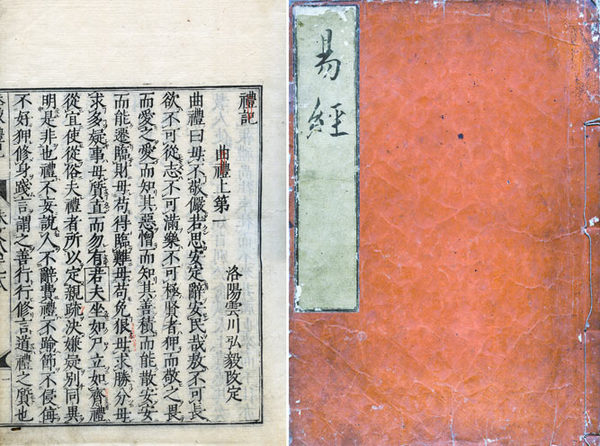 禮記
曲禮上第一
洛陽雲川弘毅改定
曲禮曰毋不敬儼若思安定辭安民哉敖不可長
欲不可從志不可滿樂不可極賢者狎而敬之畏
而愛之愛而知其惡憎而知其善積而能散安安
而能遷臨財毋苟得臨難毋苟免很毋求勝分毋
求多疑事毋質直而勿有若夫坐如尸立如齊禮
從宜使從俗夫禮者所以定親疏決嫌疑別同異
明是非也禮不妄說人不辭費禮不踰節不侵侮
不好狎修身踐言謂之善行行修言道禮之質也
易經